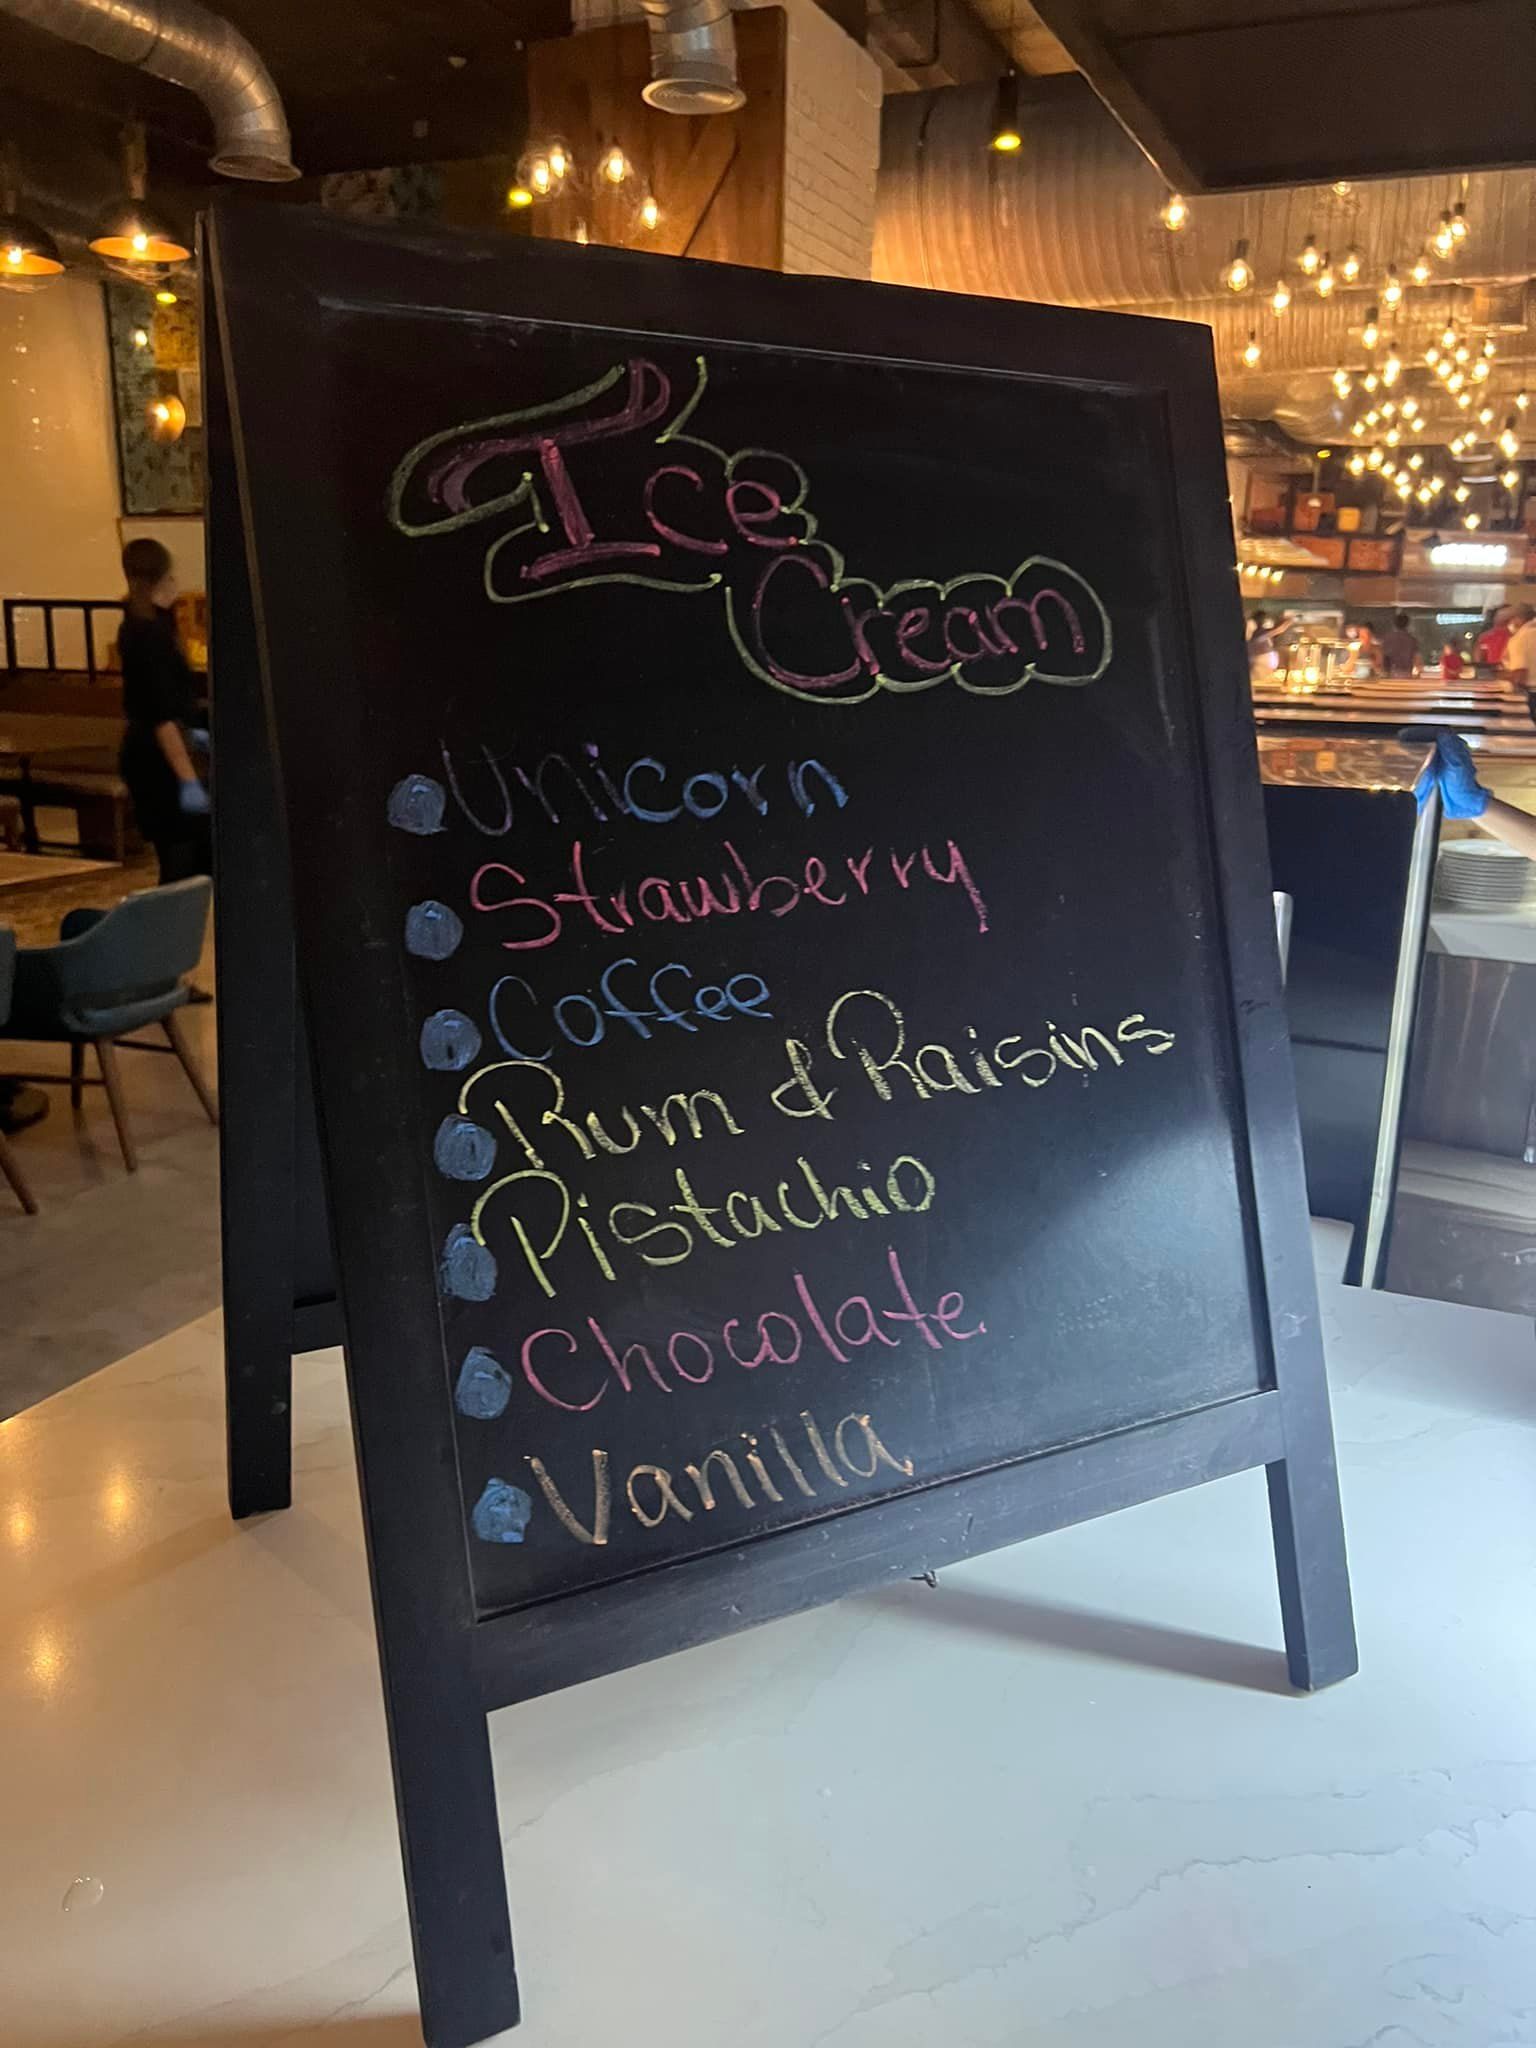 Ice
Cream
Unicorn
Strawberry
Coffee
Rum & Raisins
Pistachio
Chocolate
Vanilla